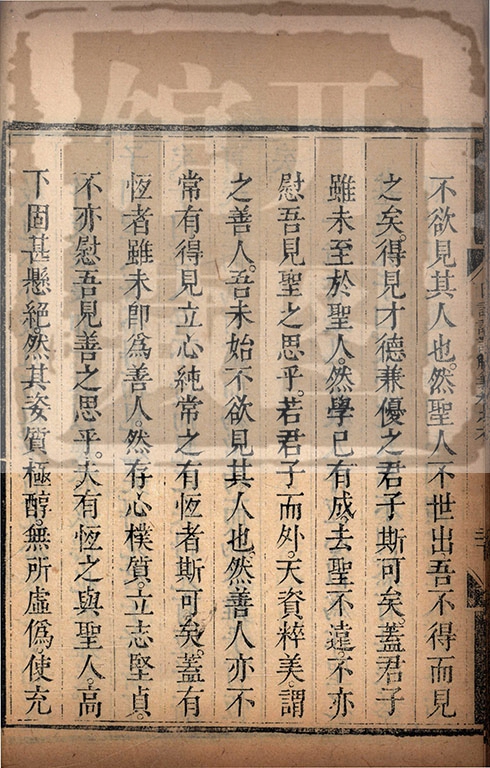 不欲見其人也。然聖人不世出。吾不得而見
之矣。得見才德兼優之君子斯可矣。蓋君子
雖未至於聖人。然學已有成。去聖不遠。不亦
慰吾見聖之思乎。若君子而外。天資粹美。謂
之善人。吾未始不欲見其人也。然善人亦不
常有。得見立心純常之有恆者斯可矣。蓋有
恆者雖未卽爲善人。然存心樸質。立志堅貞。
不亦慰吾見善之思乎。夫有恆之與聖人。高
下固甚懸絕。然其姿質極醇。無所虛僞。使充